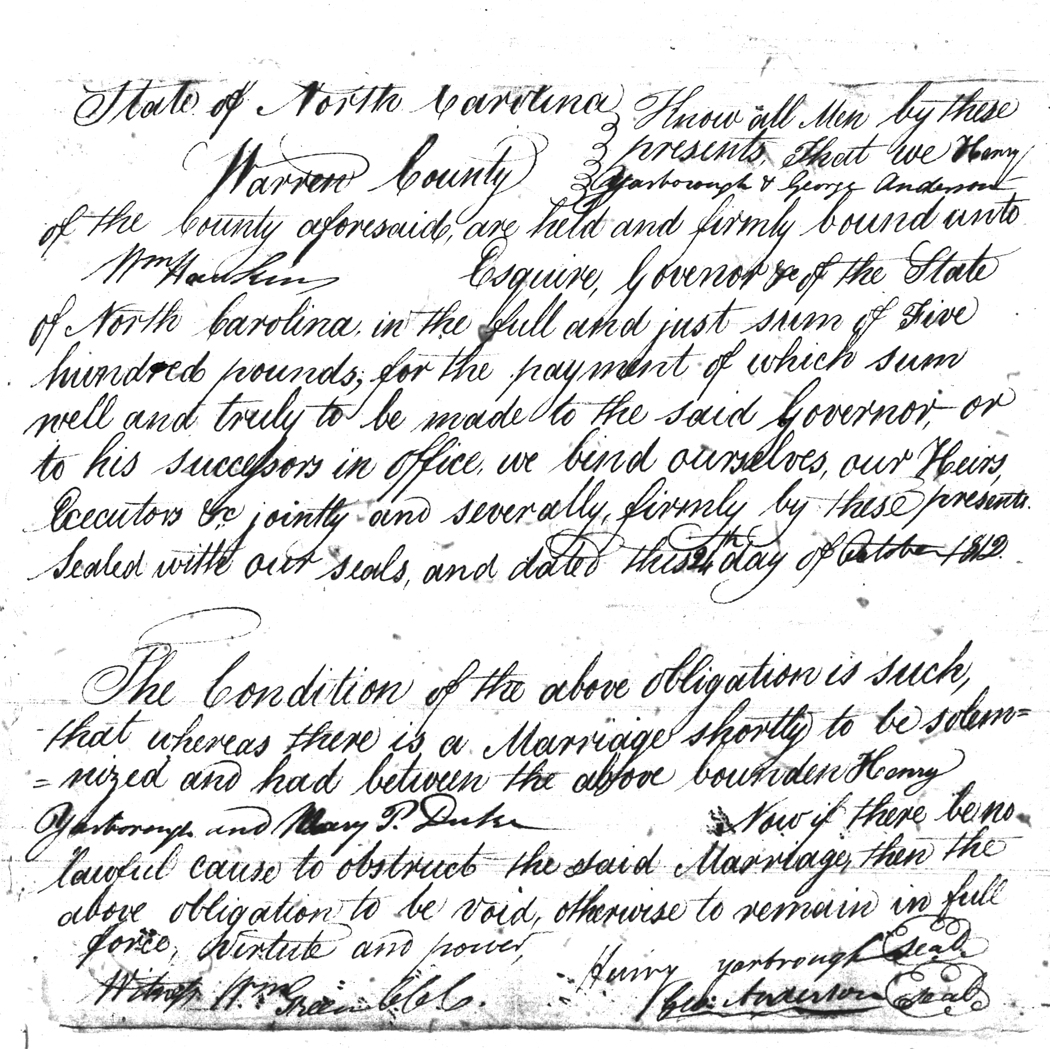 State of North Carolina
Know all Men by these
presents, that we Henry
Warren County
Yarborough & George Anderson
of the County aforesaid, are held and firmly bound unto
Wm Hawkins Esquire, Govenor &c of the State
of North Carolina, in the full and just sum of Five
hundred pounds, for the payment of which sum
well and truly to be made to the said Governor, or
to his successors in office, we bind ourselves, our Heirs,
Executors &c jointly and severally, firmly by these presents.
Sealed with our seals, and dated this 24th day of October 1812.
The Condition of the above obligation is such,
that whereas there is a Marriage shortly to be solem=
=nized and had between the above bounden Henry
Yarborough and Mary P. Duke Now if there be no
lawful cause to obstruct the said Marriage, then the
above obligation to be void, otherwise to remain in full
force, virtute and power,
Henry Yarbrough Seal
Witness Wm Green CCC.
Geo. Anderson Seal